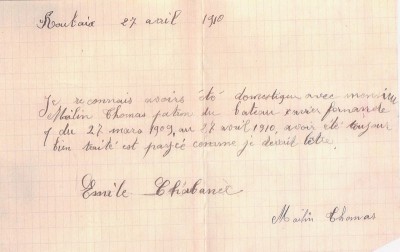 Roubaix 27 avril 1910
Je reconnais avoirs été domestique avec monsieur
Malin Thomas patron du bateau
du 27 mars 1909, au 27 avril 1910, avoir été toujour
bien traité est payée comme je devait l'être.
Emile Chabanel
Malin Thomas